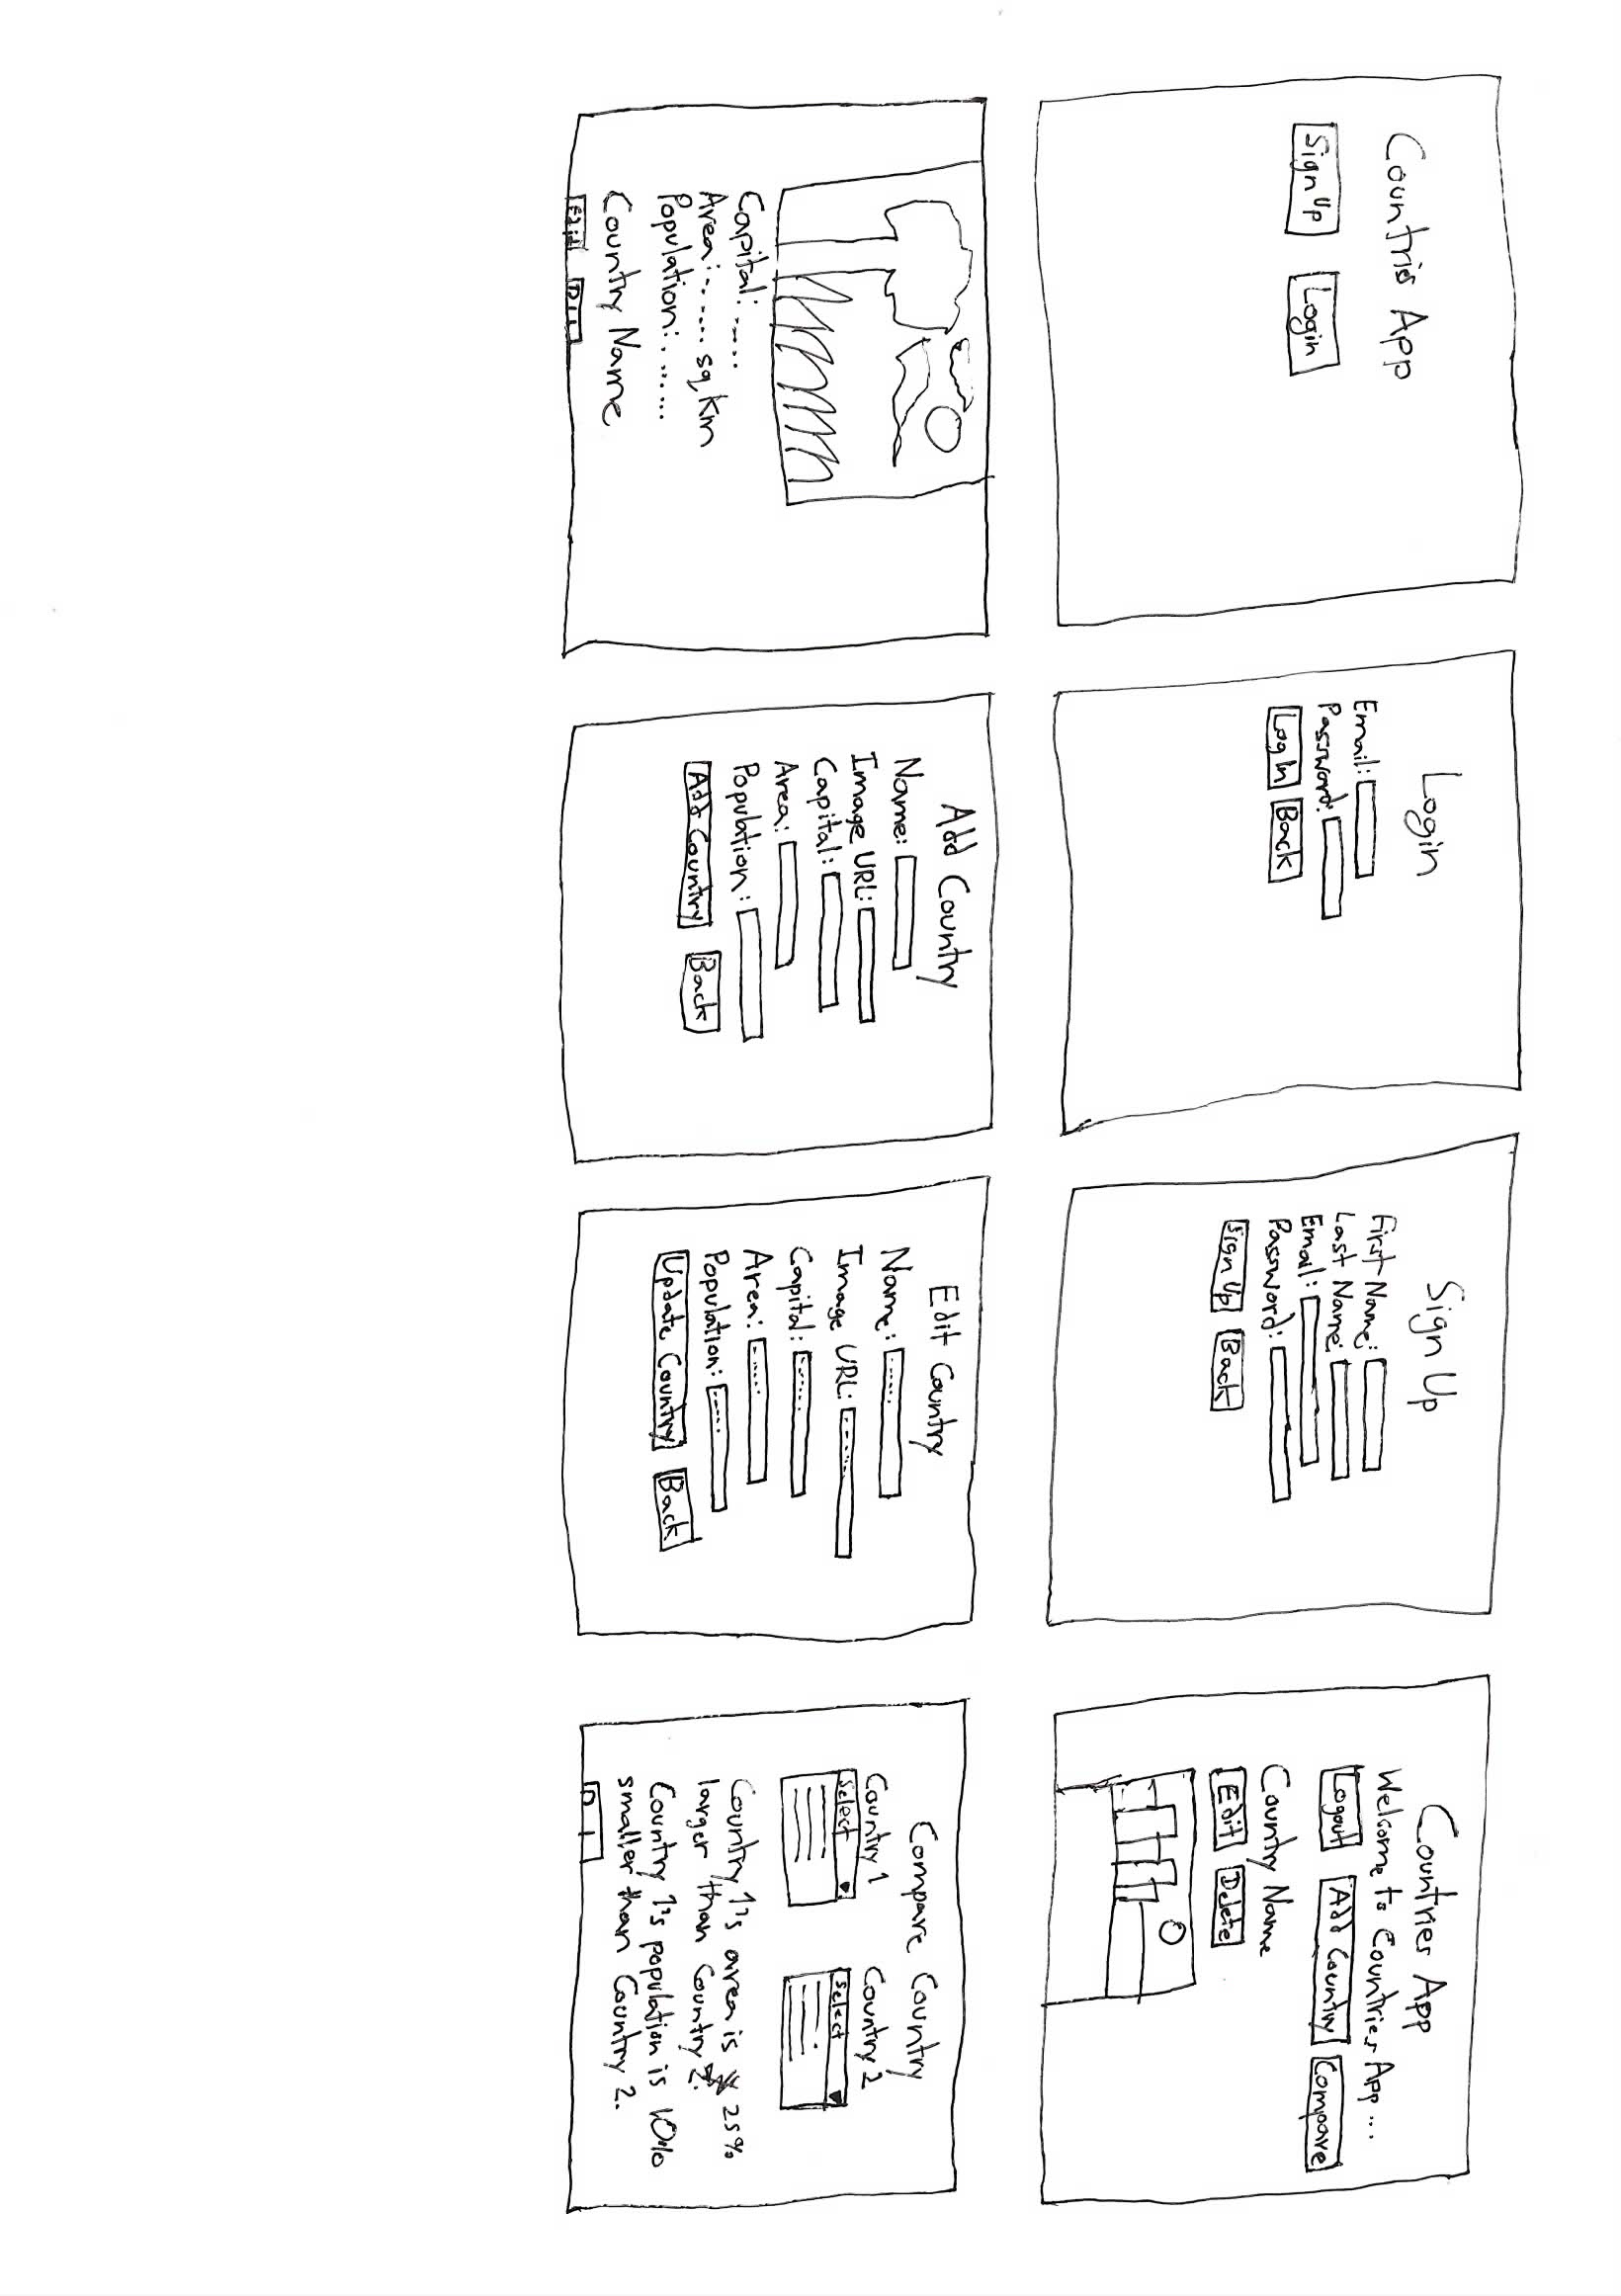 Countris App
Sign Up Login
Login
Email:
Password:
Log In Back
Sign Up
First Name:
Last Name:
Email:
Password:
Sign Up Back
Countries App
Welcome to Countries App ...
Logout Add Country Compare
Country Name
Edit Delete
Capital: .....
Area: ...... sq km
Population: ......
Country Name
Edit
Add Country
Name:
Image URL:
Capital:
Area:
Population:
Add Country Back
Edit Country
Name: .....
Image URL: ......
Capital: ......
Area: .....
Population: .....
Update Country Back
Compare Country
Country 1 Country 2
Select Select
Country 1's area is 25%
larger than Country 2.
Country 1's population is 10%
smaller than Country 2.